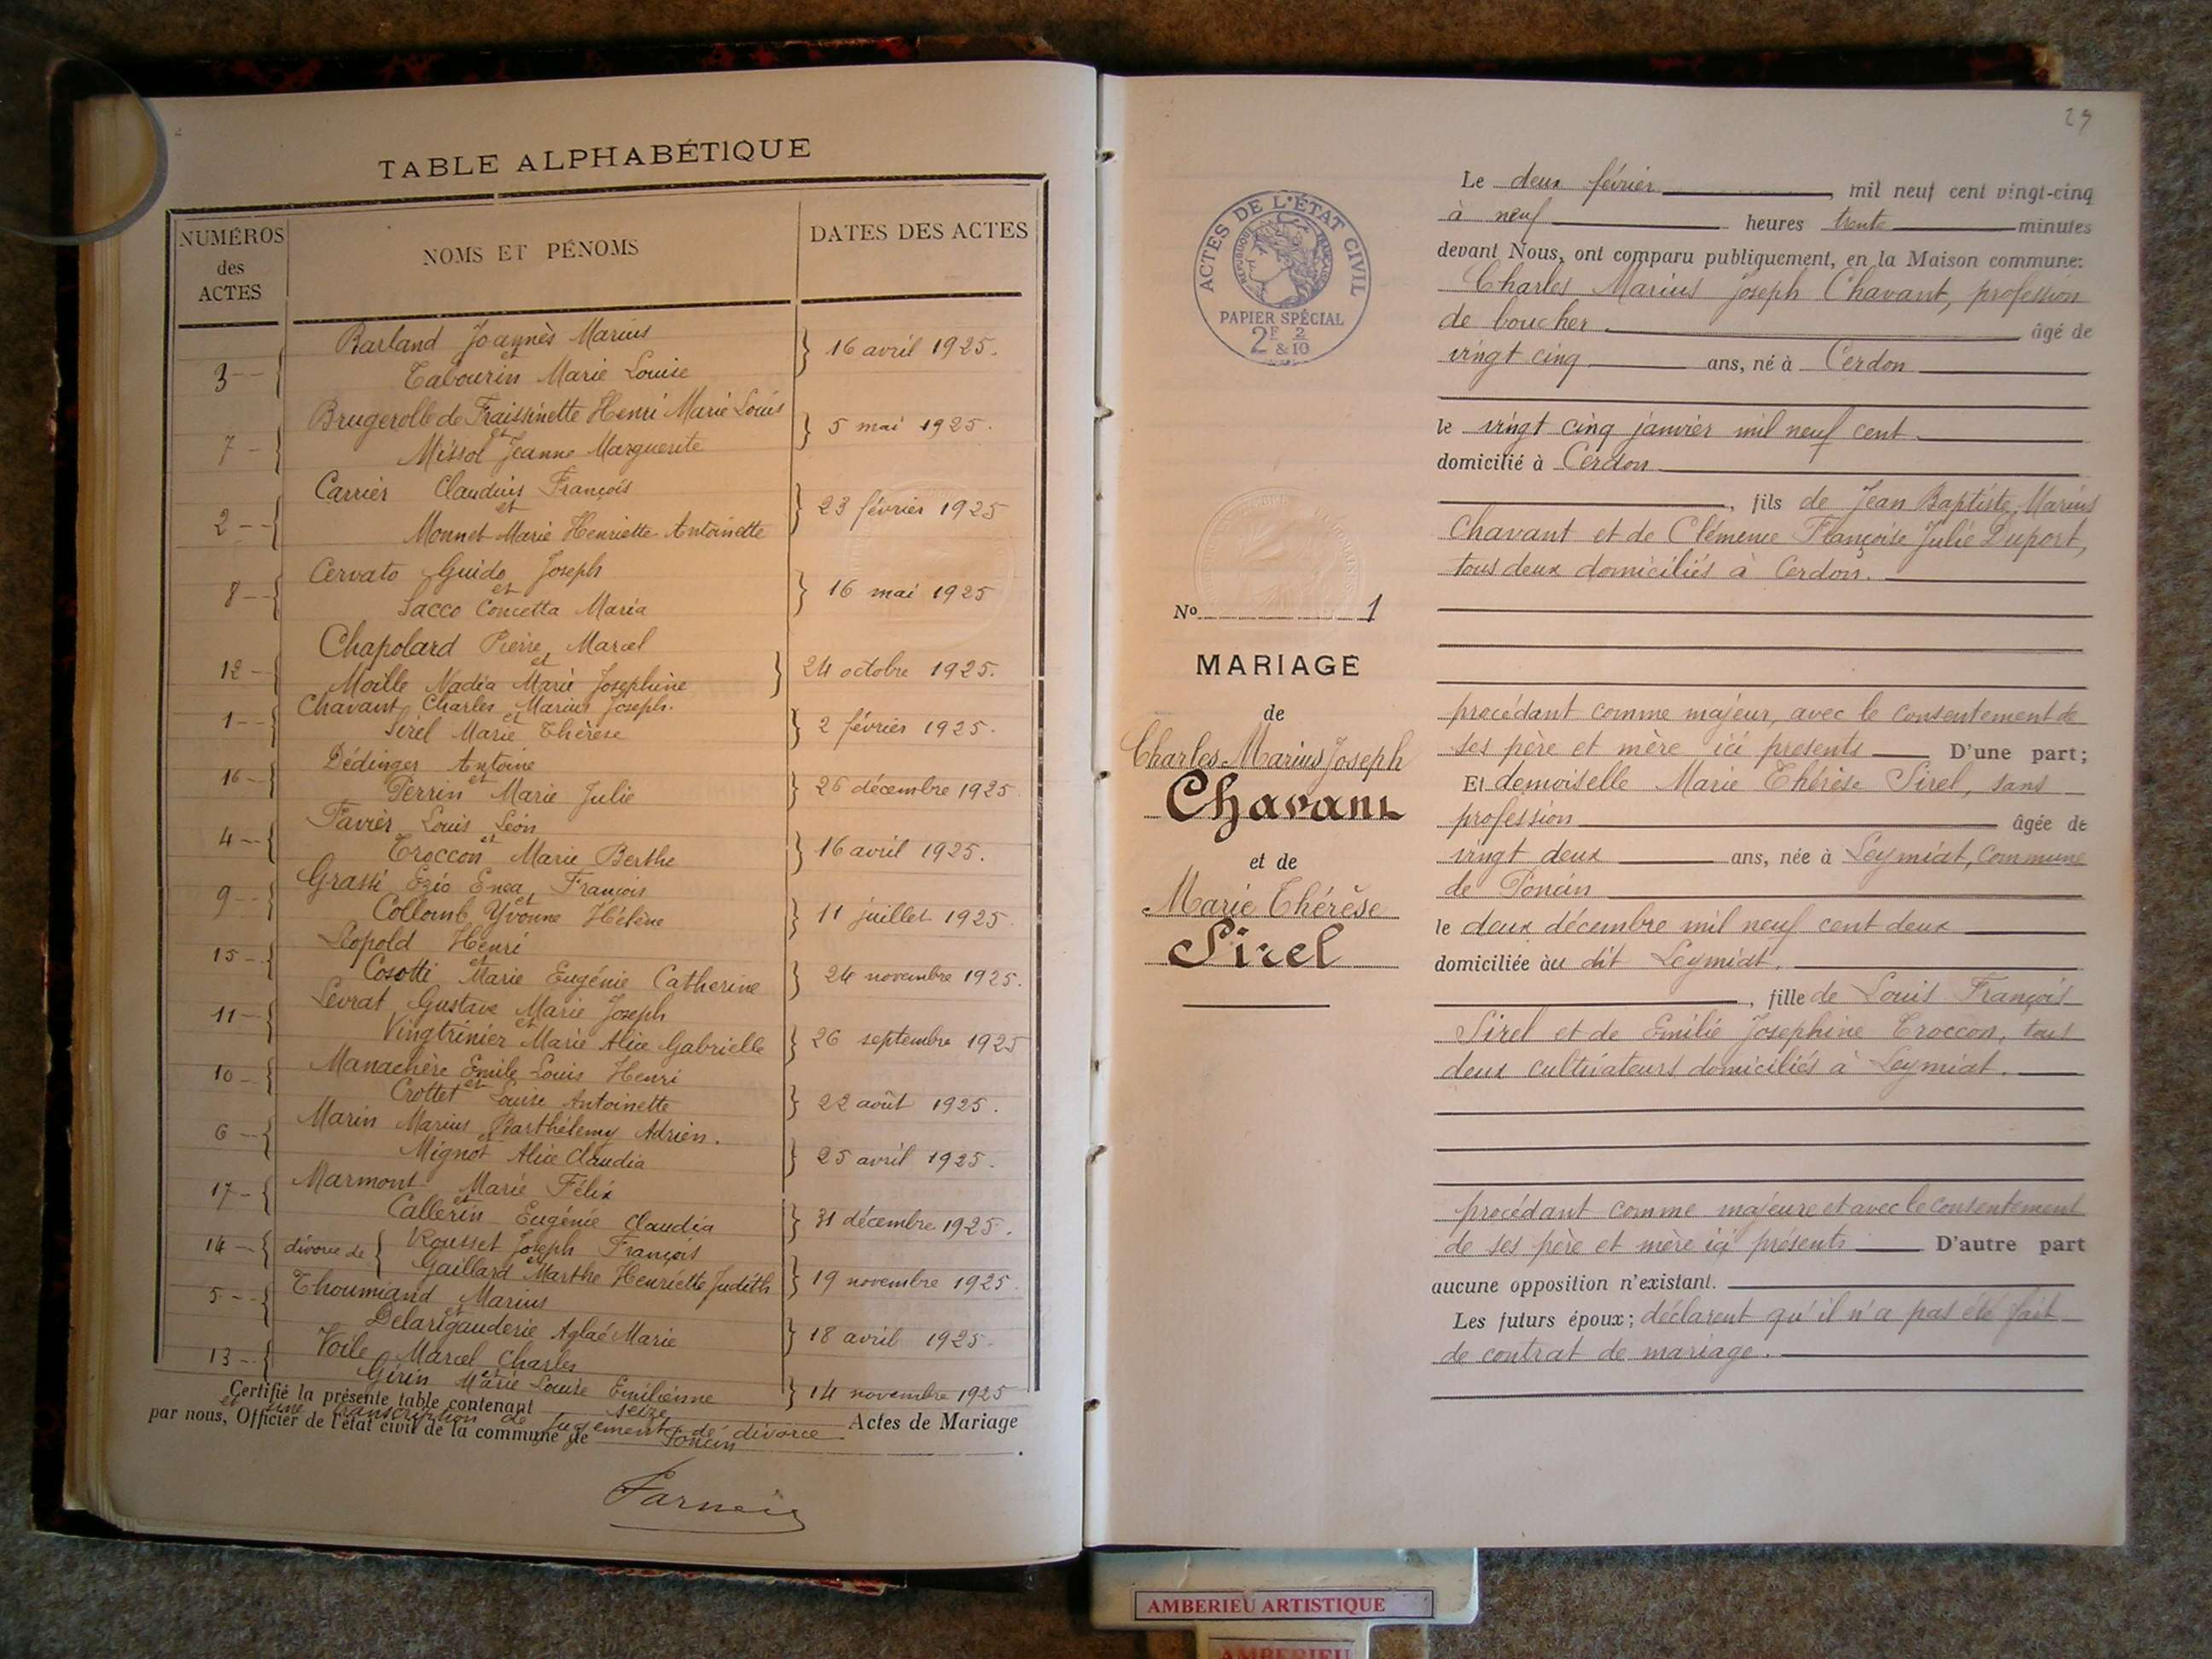 TABLE ALPHABÉTIQUE
NUMÉROS
des
ACTES
NOMS ET PÉNOMS
DATES DES ACTES
Barland Joannès Marius
et
3 Tabourin Marie Louise
16 avril 1925.
Brugerolle de Fraissinette Henri Marie Louis
et
7 Missol Jeanne Marguerite
5 mai 1925.
Carrier Claudius François
et
2 Monnet Marie Henriette Antoinette
23 février 1925
Cervato Guido Joseph
et
8 Sacco Concetta Maria
16 mai 1925
Chapolard Pierre Marcel
et
12 Moille Nadia Marie Josephine
24 octobre 1925.
Chavant Charles Marius Joseph.
et
1 Sirel Marie Thérèse
2 février 1925.
Dédinger Antoine
et
16 Perrin Marie Julie
26 décembre 1925
Favier Louis Léon
et
4 Troccon Marie Berthe
16 avril 1925.
Grassi Ezio Enea François
et
9 Collomb Yvonne Hélène
11 juillet 1925.
Léopold Henri
et
15 Cosotti Marie Eugénie Catherine
24 novembre 1925.
Levrat Gustave Marie Joseph
et
11 Vingtrinier Marie Alice Gabrielle
26 septembre 1925
Manachère Emile Louis Henri
et
10 Crottet Louise Antoinette
22 août 1925.
Marin Marius Barthélemy Adrien.
et
6 Mignot Alice Claudia
25 avril 1925.
Marmont Marie Félix
et
17 Callerin Eugénie Claudia
31 décembre 1925.
14 divorce de Rousset Joseph François
et
Gaillard Marthe Henriette Judith
19 novembre 1925.
Thoumiand Marius
et
5 Delarigauderie Aglaé Marie
18 avril 1925.
Voile Marcel Charles
et
13 Girin Marie Louise Emilienne
14 novembre 1925
Certifié la présente table contenant seize
et une transcription de jugement de divorce Actes de Mariage
par nous, Officier de l'état civil de la commune de Poncin
29
ACTES DE L'ÉTAT CIVIL
RÉPUBLIQUE FRANÇAISE
PAPIER SPÉCIAL
2F 2
& 10
No 1
MARIAGE
de
Charles Marius Joseph
Chavant
et de
Marie Thérèse
Sirel
Le deux février mil neuf cent vingt-cinq
à neuf heures trente minutes
devant Nous, ont comparu publiquement, en la Maison commune:
Charles Marius Joseph Chavant, profession
de boucher âgé de
vingt cinq ans, né à Cerdon
le vingt cinq janvier mil neuf cent
domicilié à Cerdon
, fils de Jean Baptiste Marius
Chavant et de Clémence Françoise Julie Duport,
tous deux domiciliés à Cerdon.
procédant comme majeur, avec le consentement de
ses père et mère ici présents D'une part;
Et demoiselle Marie Thérèse Sirel, sans
profession âgée de
vingt deux ans, née à Leymiat, commune
de Poncin
le deux décembre mil neuf cent deux
domiciliée àu dit Leymiat.
, fille de Louis François
Sirel et de Emilie Josephine Troccon, tous
deux cultivateurs domiciliés à Leymiat.
procédant comme majeure et avec le consentement
de ses père et mère ici présents D'autre part
aucune opposition n'existant.
Les futurs époux; déclarent qu'il n'a pas été fait
de contrat de mariage.
AMBERIEU ARTISTIQUE
AMBERIEU